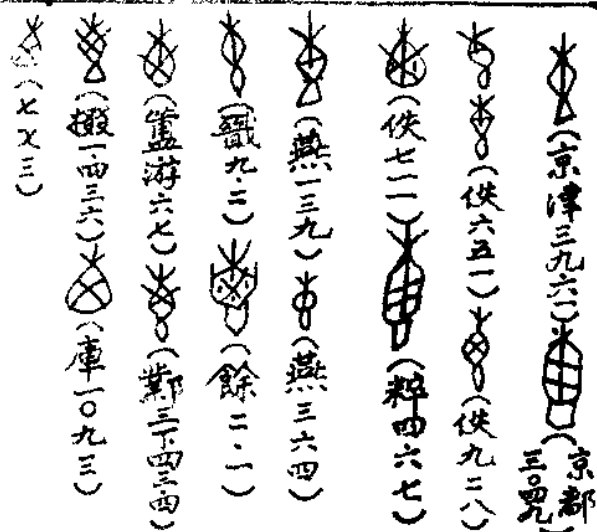 （京津三九六一）（京都三〇四九）
（佚六五一）（佚九二八）
（佚七一一）（粹四六七）
（燕一三九）（燕三六四）
（九·二）（餘二·一）
（簠游六七）（鄴三下四三四）
（掇一四三六）（庫一〇九三）